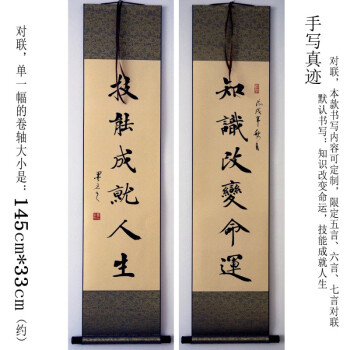 手写真迹
对联，本款书写内容可定制，限定五言、六言、七言对联
默认书写：知识改变命运，技能成就人生
戊戌年秋月
知識改變命運
技能成就人生
对联，单一幅的卷轴大小是：145cm*33cm（约）